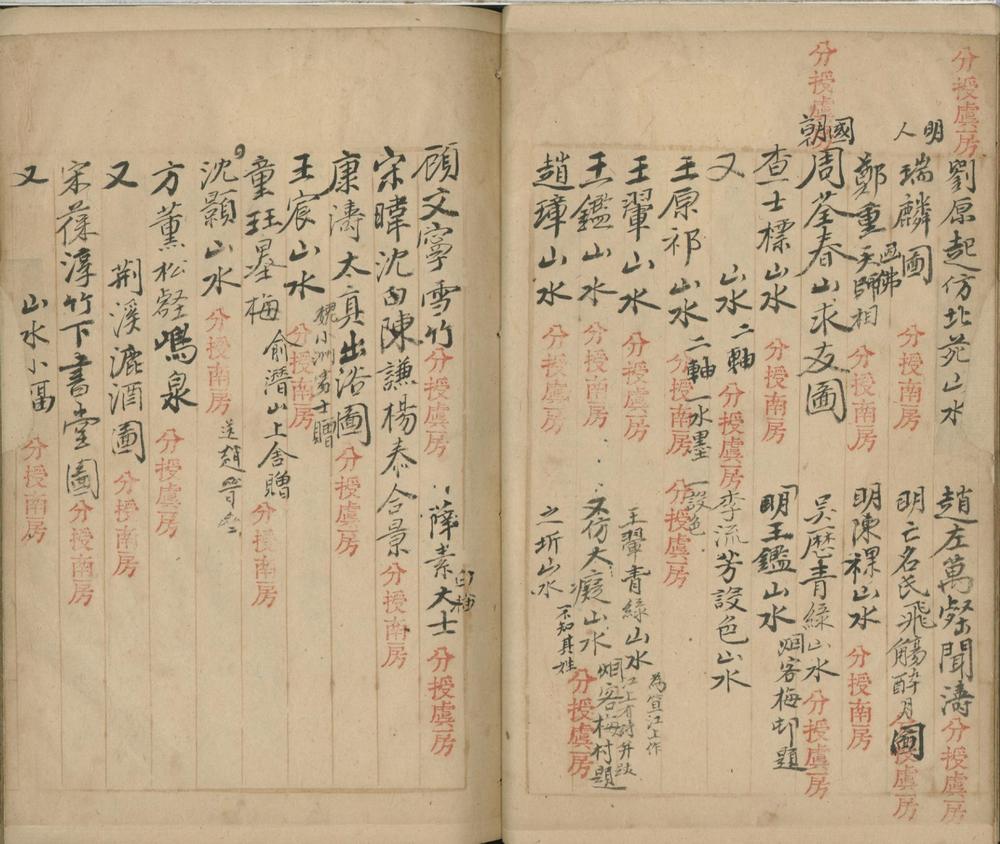 分授虞房
劉原起仿北苑山水
趙左萬壑聞濤 分授虞房
明人 瑞麟圖 分授南房
明亡名氏飛觴醉月圖 分授虞房
鄭重天師相 畫佛 分授南房
明陳祼山水 分授南房
分授虞房
國朝周荃春山求友圖
吳歷青綠山水 分授虞房
查士標山水 分授南房
明王鑑山水 烟客梅邨題
又 山水二軸 分授虞房
李流芳設色山水
王原祁山水二軸 一水墨 一設色 分授南房 分授虞房
王翬山水 分授虞房
王翬青綠山水 為笪江上作
王鑑山水 分授南房
又仿大癡山水 烟客梅村題 分授虞房
趙璋山水 分授虞房
之圻山水 不知其姓
顧文寧雪竹 分授虞房
薛素大士 白描 分授虞房
宋暐沈白陳謙楊泰合景 分授南房
康濤太真出浴圖 分授虞房
王宸山水 分授南房 魏小洲秀士贈
童珏墨梅 俞潛山上舍贈 分授南房
沈顥山水 分授南房
方薰松壑鳴泉 分授虞房
又 荆溪漉酒圖 分授南房
宋葆淳竹下書堂圖 分授南房
又 山水小幅 分授南房